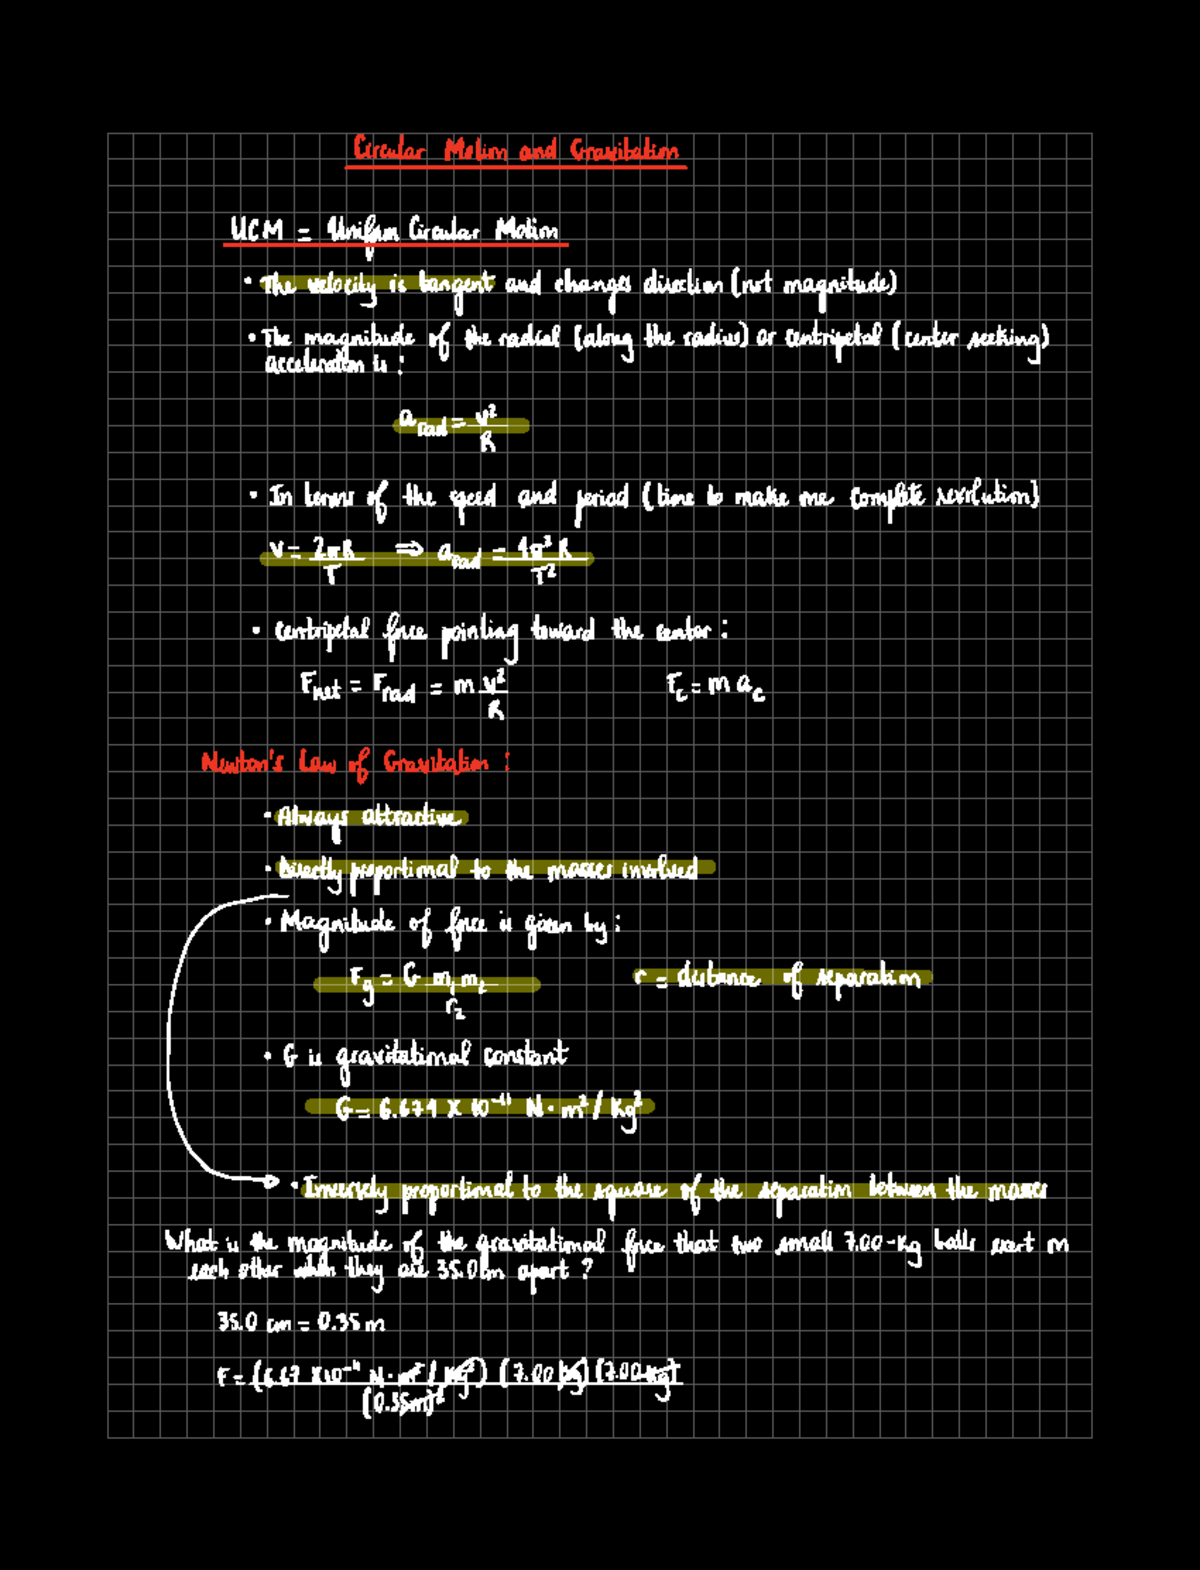 Circular Motion and Gravitation
UCM = Uniform Circular Motion
• The velocity is tangent and changes direction (not magnitude)
• The magnitude of the radial (along the radius) or centripetal (center seeking)
acceleration is :
a_rad = v²/R
• In terms of the speed and period (time to make one complete revolution)
v = 2πR/T ⇒ a_rad = 4π²R/T²
• Centripetal force pointing toward the center :
F_net = F_rad = m v²/R F_c = m a_c
Newton's Law of Gravitation :
• Always attractive
• Directly proportional to the masses involved
• Magnitude of force is given by :
F_g = G m₁ m₂/r₂ r = distance of separation
• G is gravitational constant
G = 6.674 X 10⁻¹¹ N·m²/Kg²
• Inversely proportional to the square of the separation between the masses
What is the magnitude of the gravitational force that two small 7.00-Kg balls exert on
each other when they are 35.0cm apart ?
35.0 cm = 0.35 m
F = (6.67 X10⁻¹¹ N·m²/Kg²) (7.00 kg) (7.00 kg)/(0.35m)²